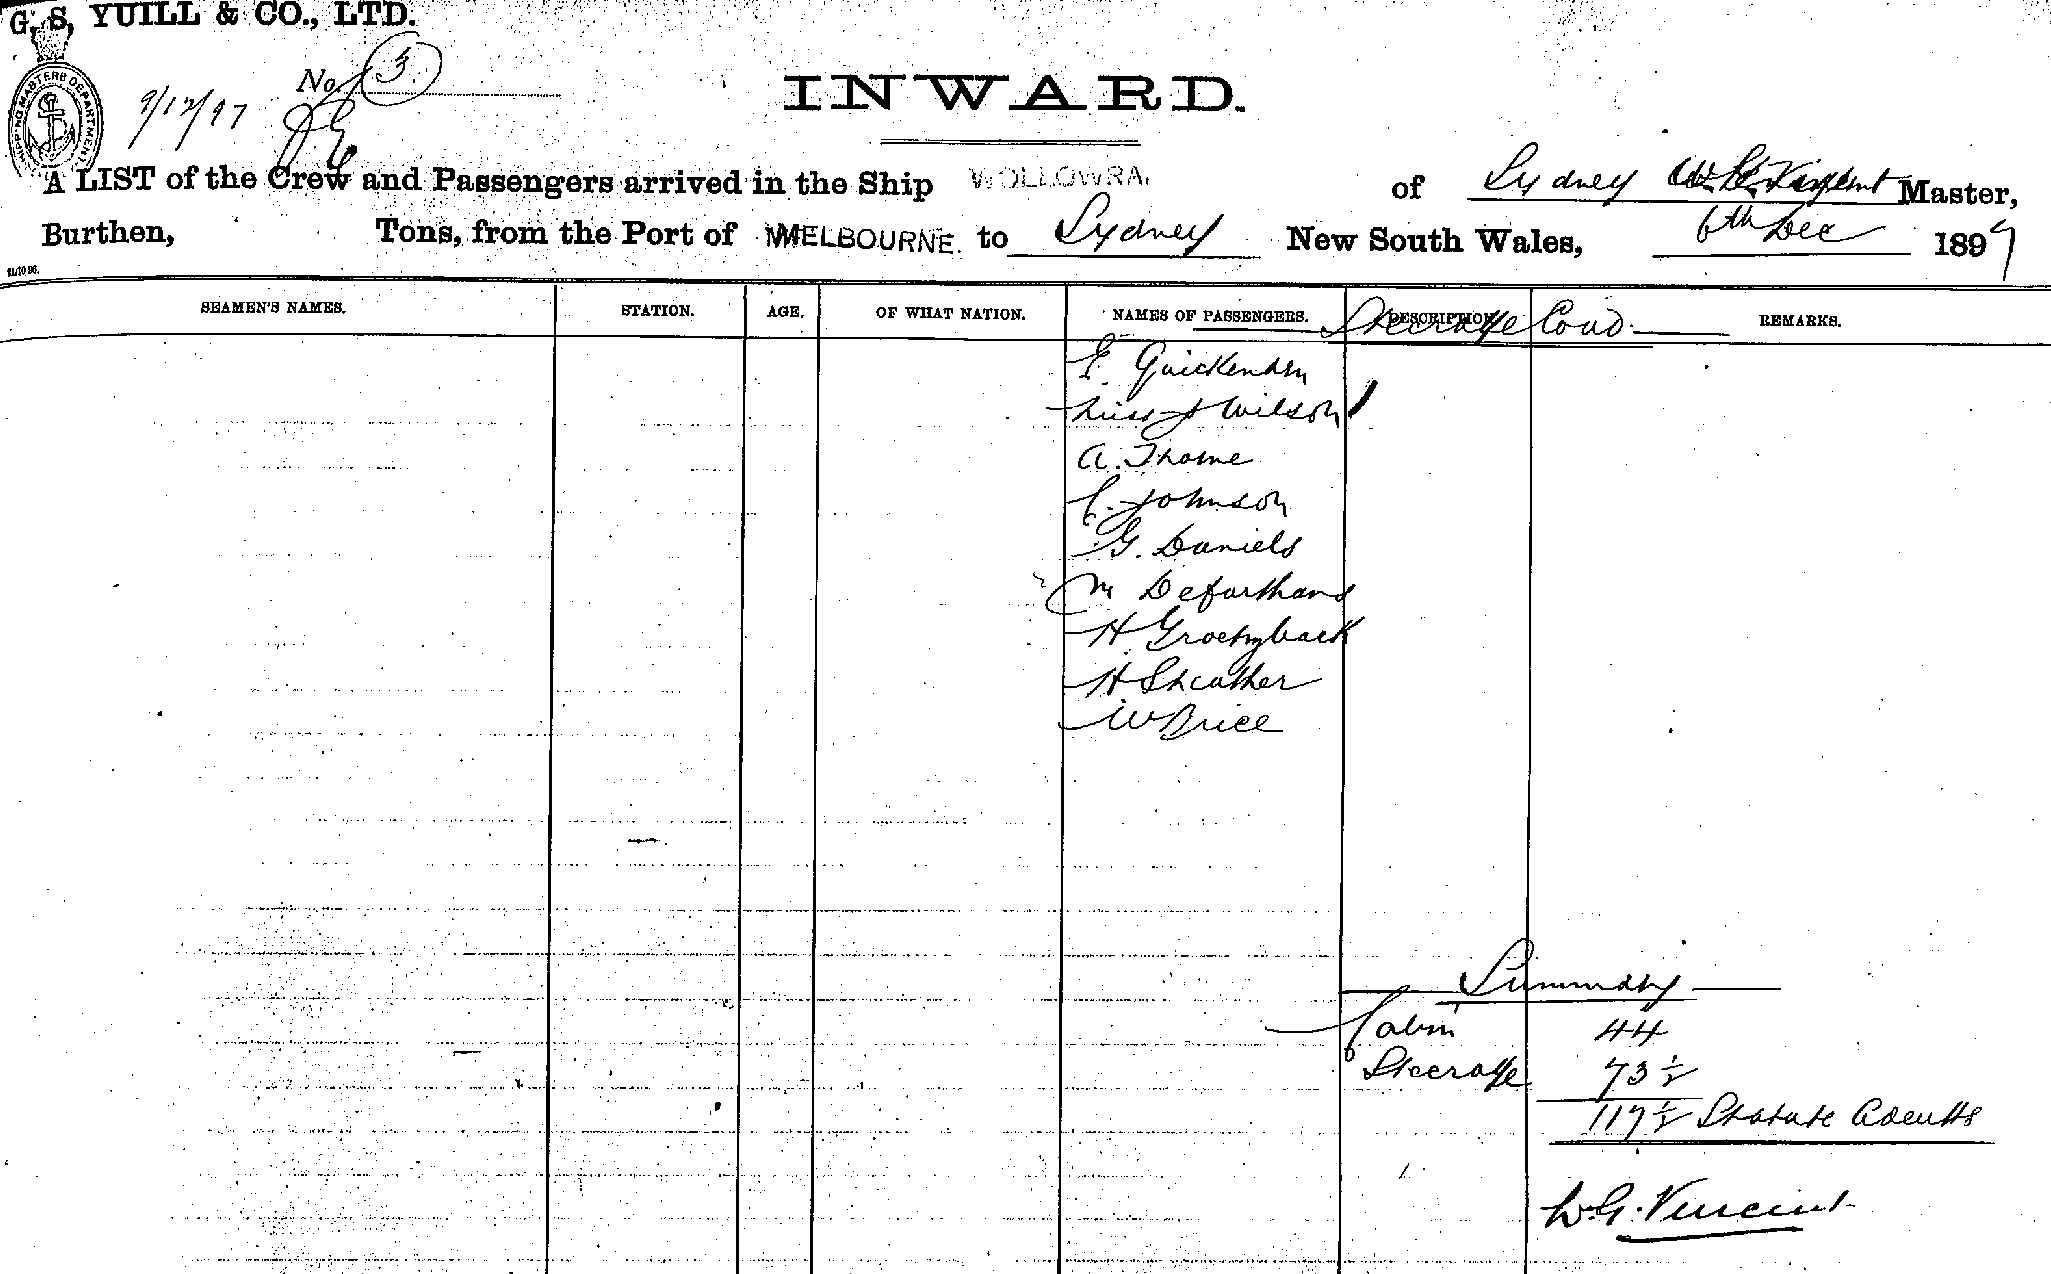 G. S. YUILL & CO., LTD.
SHIPPING MASTERS DEPARTMENT
No. 3
9/12/97
INWARD.
A LIST of the Crew and Passengers arrived in the Ship WOLLOWRA. of Sydney Master,
Burthen, Tons, from the Port of MELBOURNE. to Sydney New South Wales, 6th Dec 1897
SEAMEN'S NAMES. STATION. AGE. OF WHAT NATION. NAMES OF PASSENGERS. DESCRIPTION. REMARKS.
Steerage Cond.
E. Quickenden
Miss J Wilson
A. Thorne
C. Johnson
G. Daniels
M
H
H Sheather
W Brice
Summary
Cabin 44
Steerage 73 1/2
117 1/2 Statute Adults
W. G. Vincent